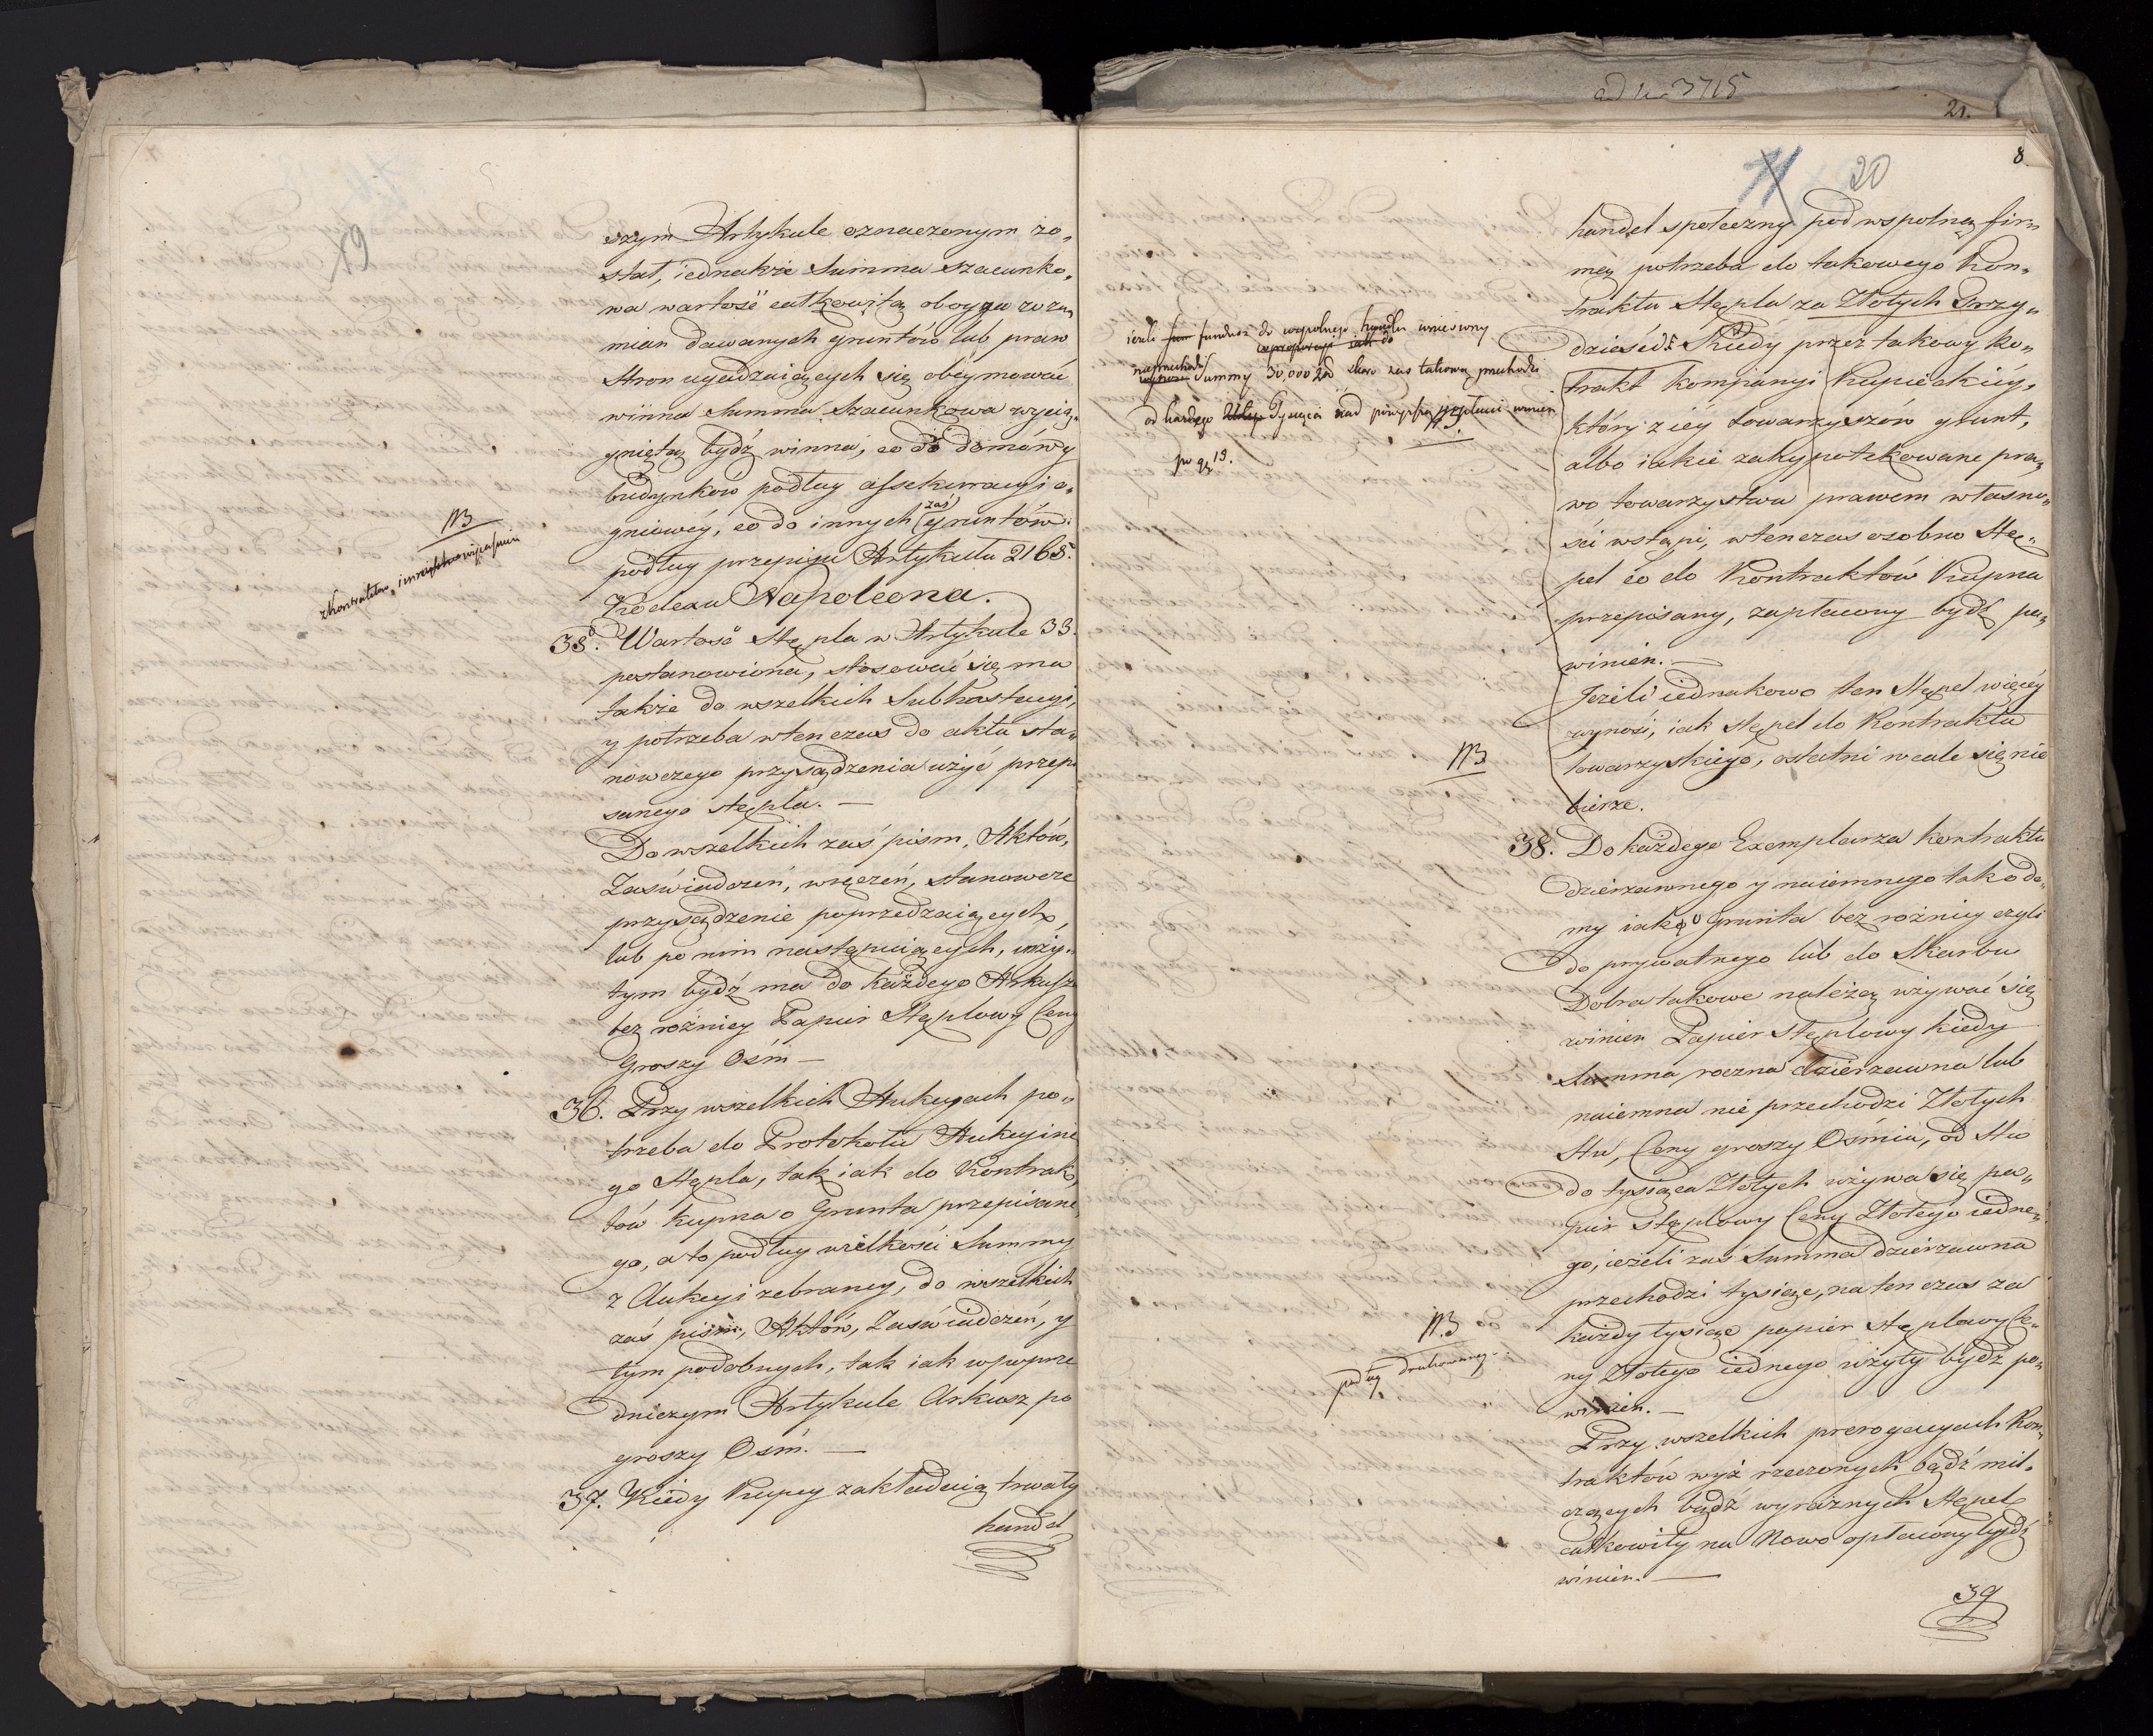 19
szym Artykule oznaczonym zo„
stał, iednakże Summa szacunko„
wa wartość całkowitą oboyga w za„
mian dawanych gruntów lub praw
Stron ugadzaiących się obeymować
winna Summa Szacunkowa wycią„
gniętą bydź winna, co do domów y
budynkow podług assekuracyi o„
gniowéy, co do innych zaś gruntów
podług przepisu Artykułu 2165.
Kodexu Napoleona.
NB
35. Wartość Stępla w Artykule 33.
postanowiona, stosować się ma
także do wszelkich Subhastacyi,
y potrzeba wtenczas do aktu sta„
nowczego przysądzenia użyć przepi
sanego stępla. —
Do wszelkich zaś pism, Aktów,
Zaświadczeń, wręczeń, stanowcze
przysądzenie poprzedzaiących,
lub po nim następuiących, uży„
tym bydź ma do każdego Arkusza
bez różnicy Papier Stęplowy Ceny
Groszy Ośm —
36. Przy wszelkich Aukcyach po„
trzeba do Protokołu Aukcyine
go Stępla, tak iak do Kontrak„
tów kupna o Grunta przepisane
go, a to podług wielkości Summy
z Aukcyi zebraney, do wszelkich
zaś pism, Aktów, Zaświadczeń, y
tym podobnych, tak iak w poprze
dniczym Artykule Arkusz po
groszy Ośm. —
37. Kiedy Kupcy zakładaią trwały
handel
ad No 3715
21.
8
20
handel społeczny pod wspolną fir„
mą potrzeba do takowego Kon„
traktu Stępla za Złotych Trzy„
dzieści. Kiedy przez takowy ko„
trakt kompanyi Kupieckiéy,
który z iéy towarzyszów grunt,
albo iakie zahypotekowane pra„
wo towarzystwa prawem własno„
ści wstąpi, wtenczas osobno Stę„
pel co do Kontraktów Kupna
przepisany, zapłacony bydź po„
winien. —
Jeżeli iednakowo ten Stępel więcéy
wynosi, iak stępel do Kontraktu
towarzyskiego, ostatni wcale się nie
bierze.
ieżeli fundusz do wspolnego handlu wniesiony
nieprzechodzi Summy 30,000 Zł skoro zaś takową przechodzi
od każdego Tysiąca nad powyższą Summę winien
po gr 19.
NB
NB
38. Do każdego Exemplarza kontraktu
dzierzawnego y naiemnego tak o do„
my iako o grunta bez różnicy czyli
do prywatnego lub do Skarbu
Dobra takowe należą używać się
winien Papier Stęplowy kiedy
Summa roczna dzierzawna lub
naiemna nie przechodzi Złotych
Stu, Ceny groszy Ośmiu, od Stu
do tysiąca Złotych używa się pa„
pier stęplowy Ceny Złotego iedne„
go, ieżeli zaś Summa dzierżawna
przechodzi tysiąc, na ten czas za
każdy tysiąc papier stęplowy Ce„
ny Złotego iednego użyty bydź po„
winien. —
NB
podług drukowaney
Przy wszelkich prerogacyach Kon„
traktów wyż rzeczonych bądź mil„
czących bądź wyraźnych Stępel
całkowity na Nowo opłacony bydź
winien. —
39